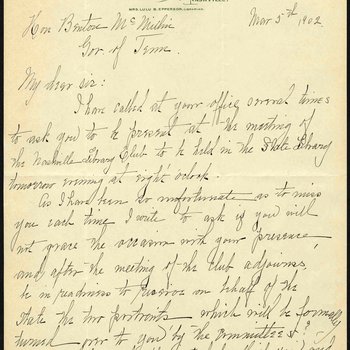 NASHVILLE
MRS. LULU B. EPPERSON, LIBRARIAN
Mar 5th, 1902
Hon Benton McMillin
Gov. of Tenn.
My dear sir:
I have called at your office several times
to ask you to be present at the meeting of
the Nashville Library Club to be held in the State Library
tomorrow evening at eight oclock.
As I have been so unfortunate as to miss
you each time I write to ask if you will
not grace the occasion with your presence,
and, after the meeting of the Club adjourns,
be in readiness to receive on behalf of the
State the two portraits which will be formally
turned over to you by the committees?